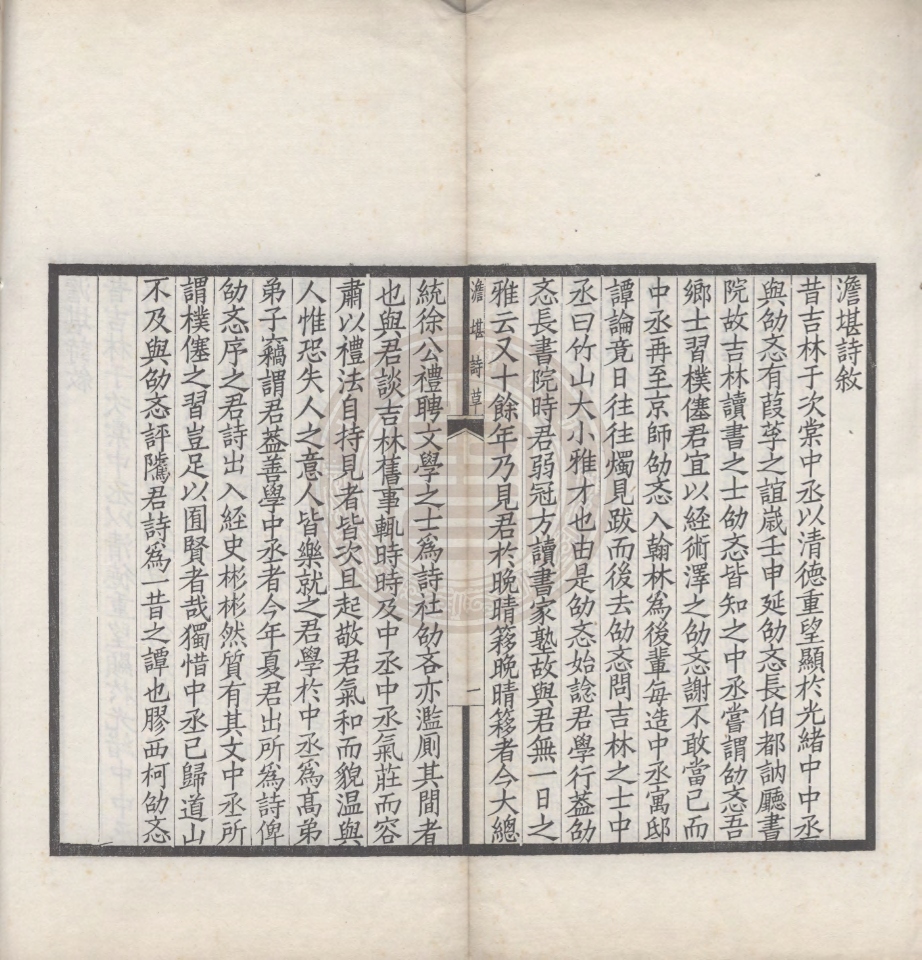 澹堪詩敘
昔吉林于次棠中丞以清德重望顯於光緒中中丞
與劭忞有葭莩之誼嵗壬申延劭忞長伯都訥廳書
院故吉林讀書之士劭忞皆知之中丞嘗謂劭忞吾
鄉士習樸僿君宜以經術澤之劭忞謝不敢當已而
中丞再至京師劭忞入翰林為後輩每造中丞寓邸
譚論竟日往往燭見跋而後去劭忞問吉林之士中
丞曰竹山大小雅才也由是劭忞始諗君學行葢劭
忞長書院時君弱冠方讀書家塾故與君無一日之
雅云又十餘年乃見君於晚晴簃晚晴簃者今大總
澹堪詩草
一
統徐公禮聘文學之士爲詩社劭忞亦濫厠其間者
也與君談吉林舊事輒時時及中丞中丞氣莊而容
肅以禮法自持見者皆次且起敬君氣和而貌温與
人惟恐失人之意人皆樂就之君學於中丞爲高弟
弟子竊謂君葢善學中丞者今年夏君出所爲詩俾
劭忞序之君詩出入經史彬彬然質有其文中丞所
謂樸僿之習豈足以囿賢者哉獨惜中丞已歸道山
不及與劭忞評隲君詩爲一昔之譚也膠西柯劭忞